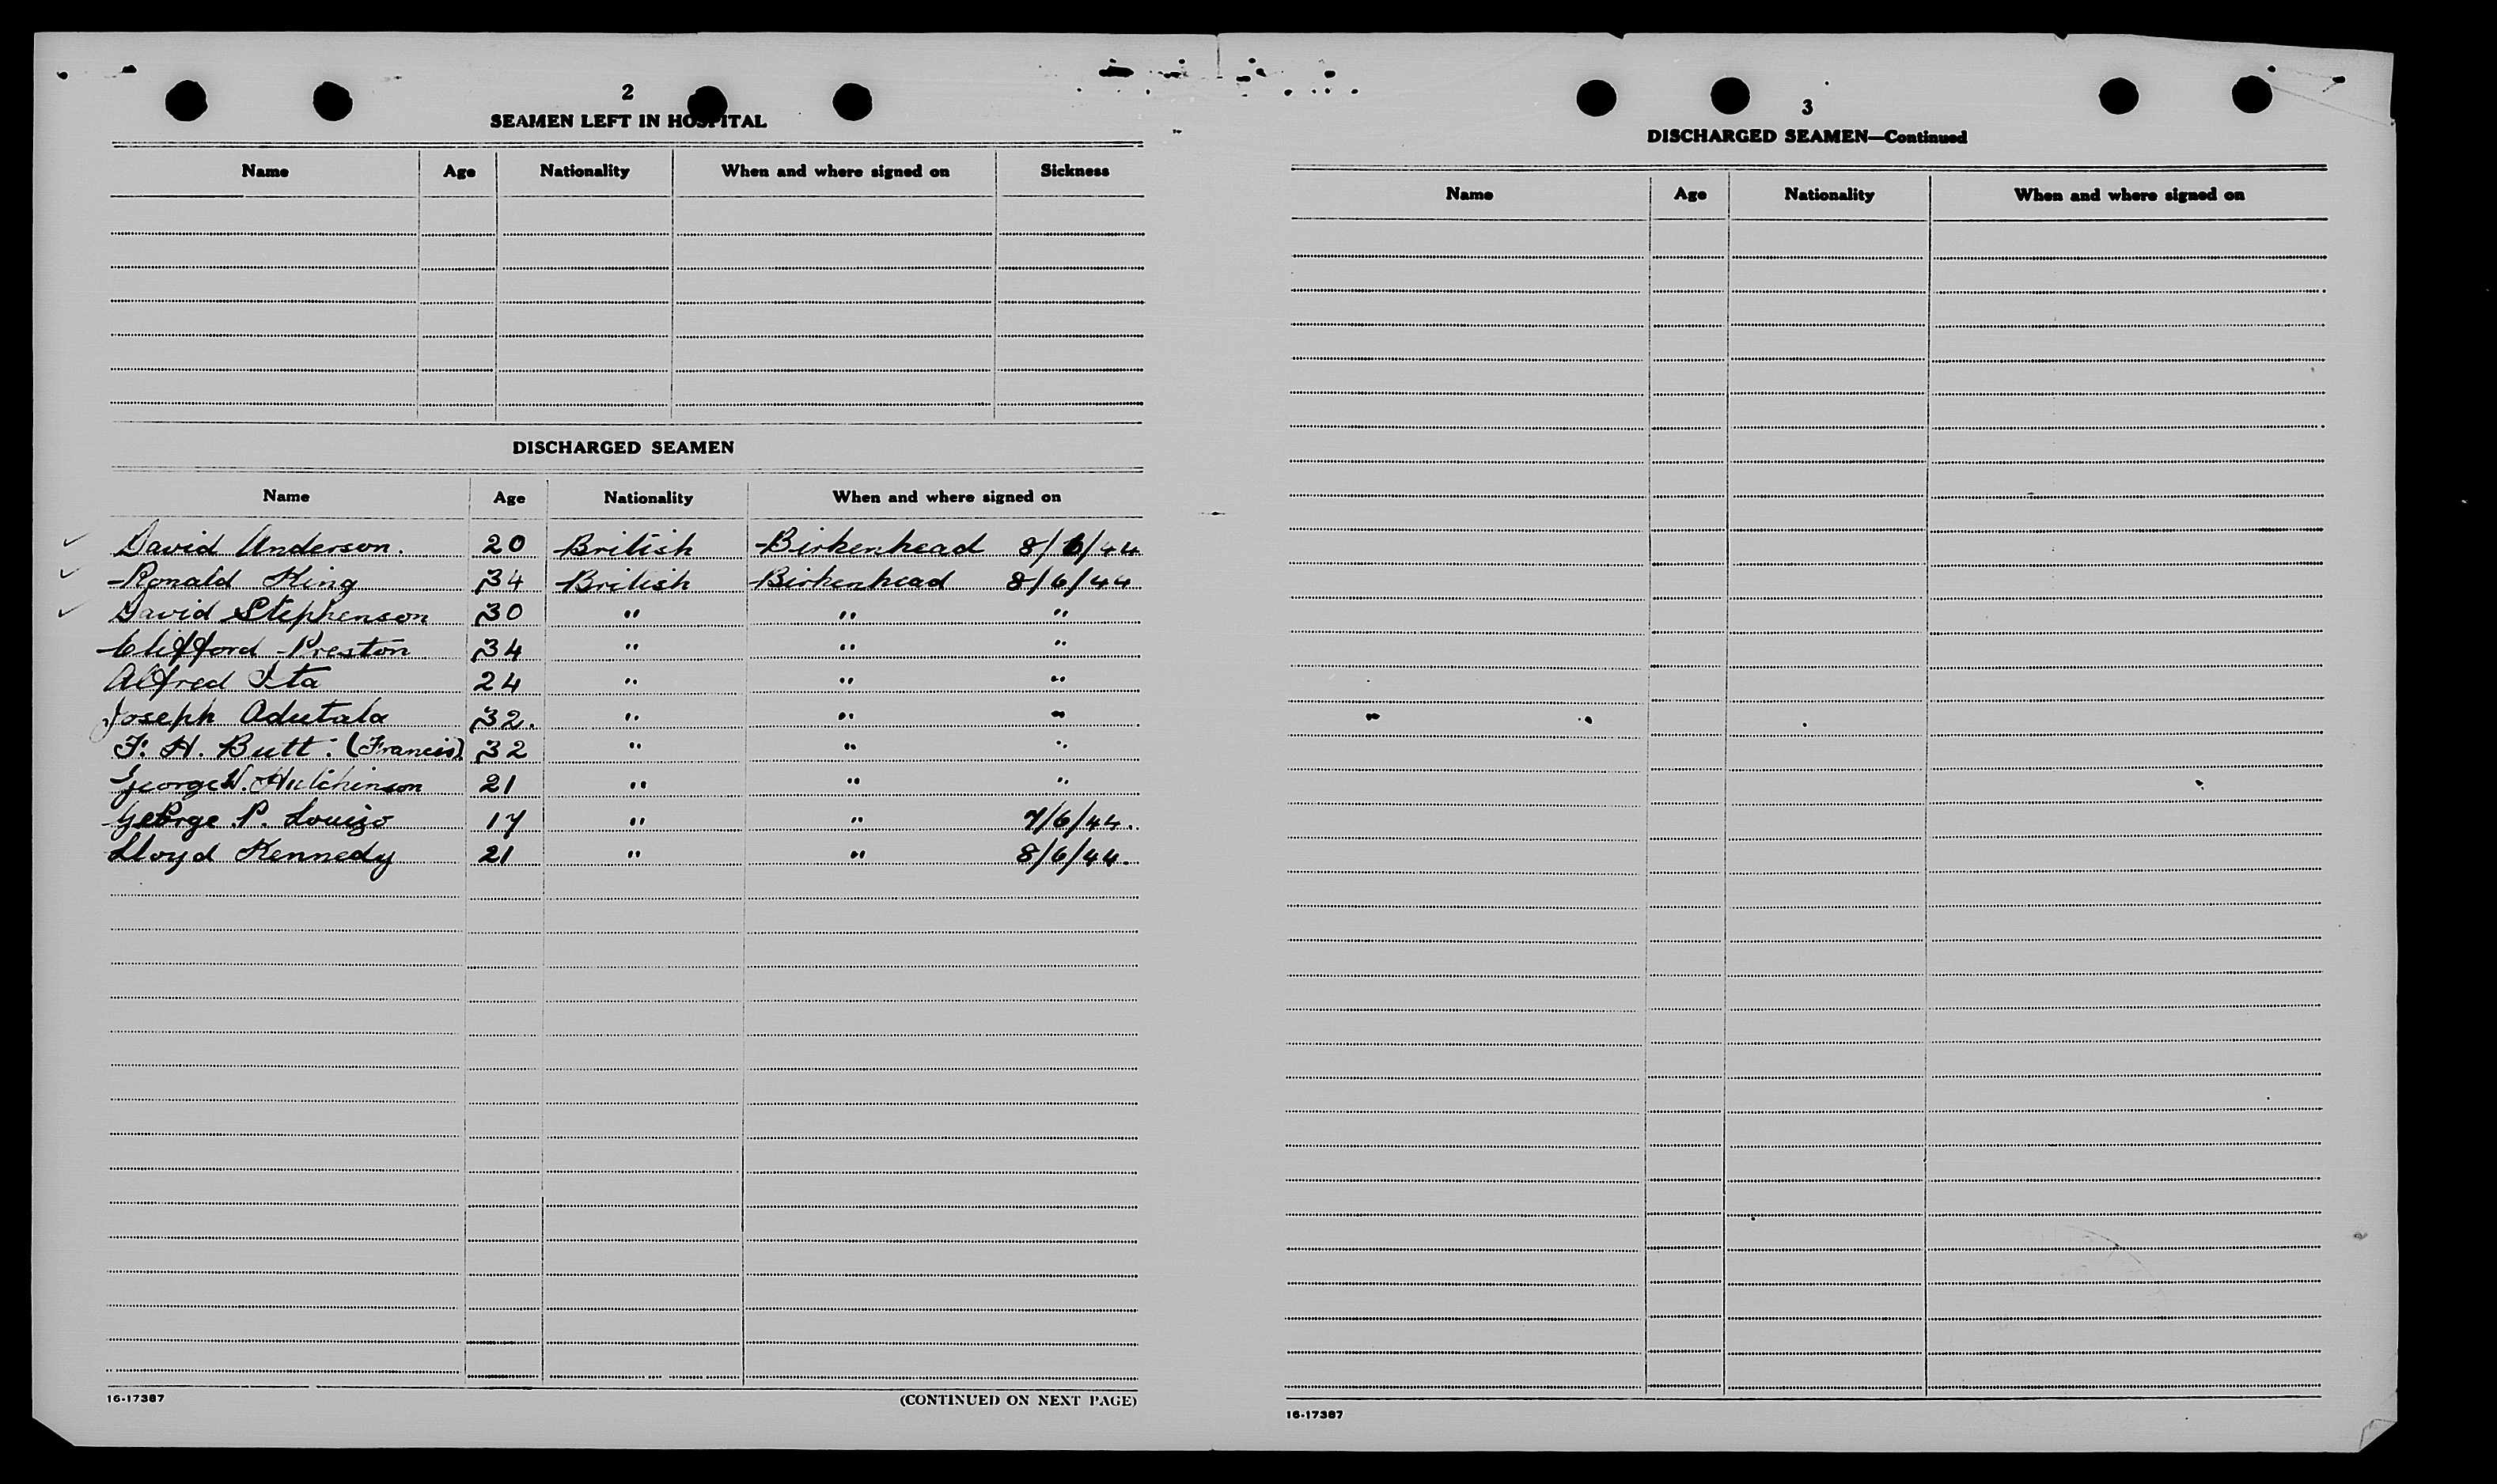 2
SEAMEN LEFT IN HOSPITAL
Name Age Nationality When and where signed on Sickness
DISCHARGED SEAMEN
Name Age Nationality When and where signed on
David Anderson. 20 British Birkenhead 8/6/44
Ronald King 34 British Birkenhead 8/6/44
David Stephenson 30 " " "
Clifford Preston 34 " " "
Alfred Ita 24 " " "
Joseph Adutala 32. " " "
F. H. Butt. (Francis) 32 " " "
George W. Hutchinson 21 " " "
George P. Louizo 17 " " 7/6/44.
Lloyd Kennedy 21 " " 8/6/44.
16-17387 (CONTINUED ON NEXT PAGE)
3
DISCHARGED SEAMEN—Continued
Name Age Nationality When and where signed on
16-17387